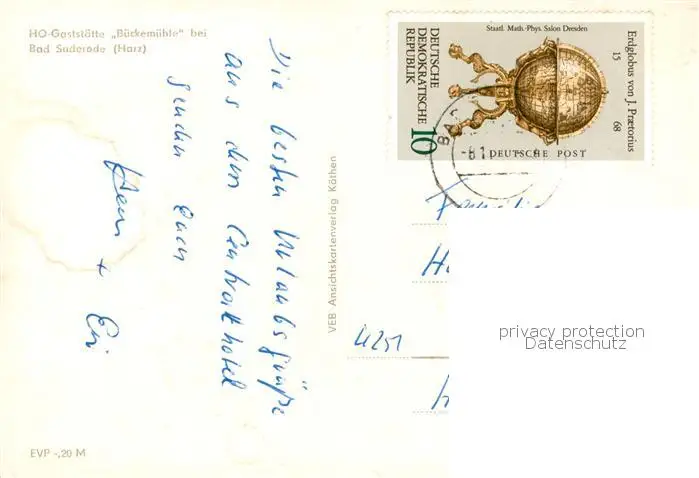 HO-Gaststätte „Bückemühle" bei
Bad Suderode (Harz)
Die besten Urlaubsgrüße
aus dem Centralhotel
senden Euch
+
VEB Ansichtskartenverlag Köthen
EVP -,20 M
DEUTSCHE
DEMOKRATISCHE
REPUBLIK
Staatl. Math.-Phys. Salon Dresden
Erdglobus von J. Prætorius
15 68
10
DEUTSCHE POST
-8.1
4251
privacy protection
Datenschutz